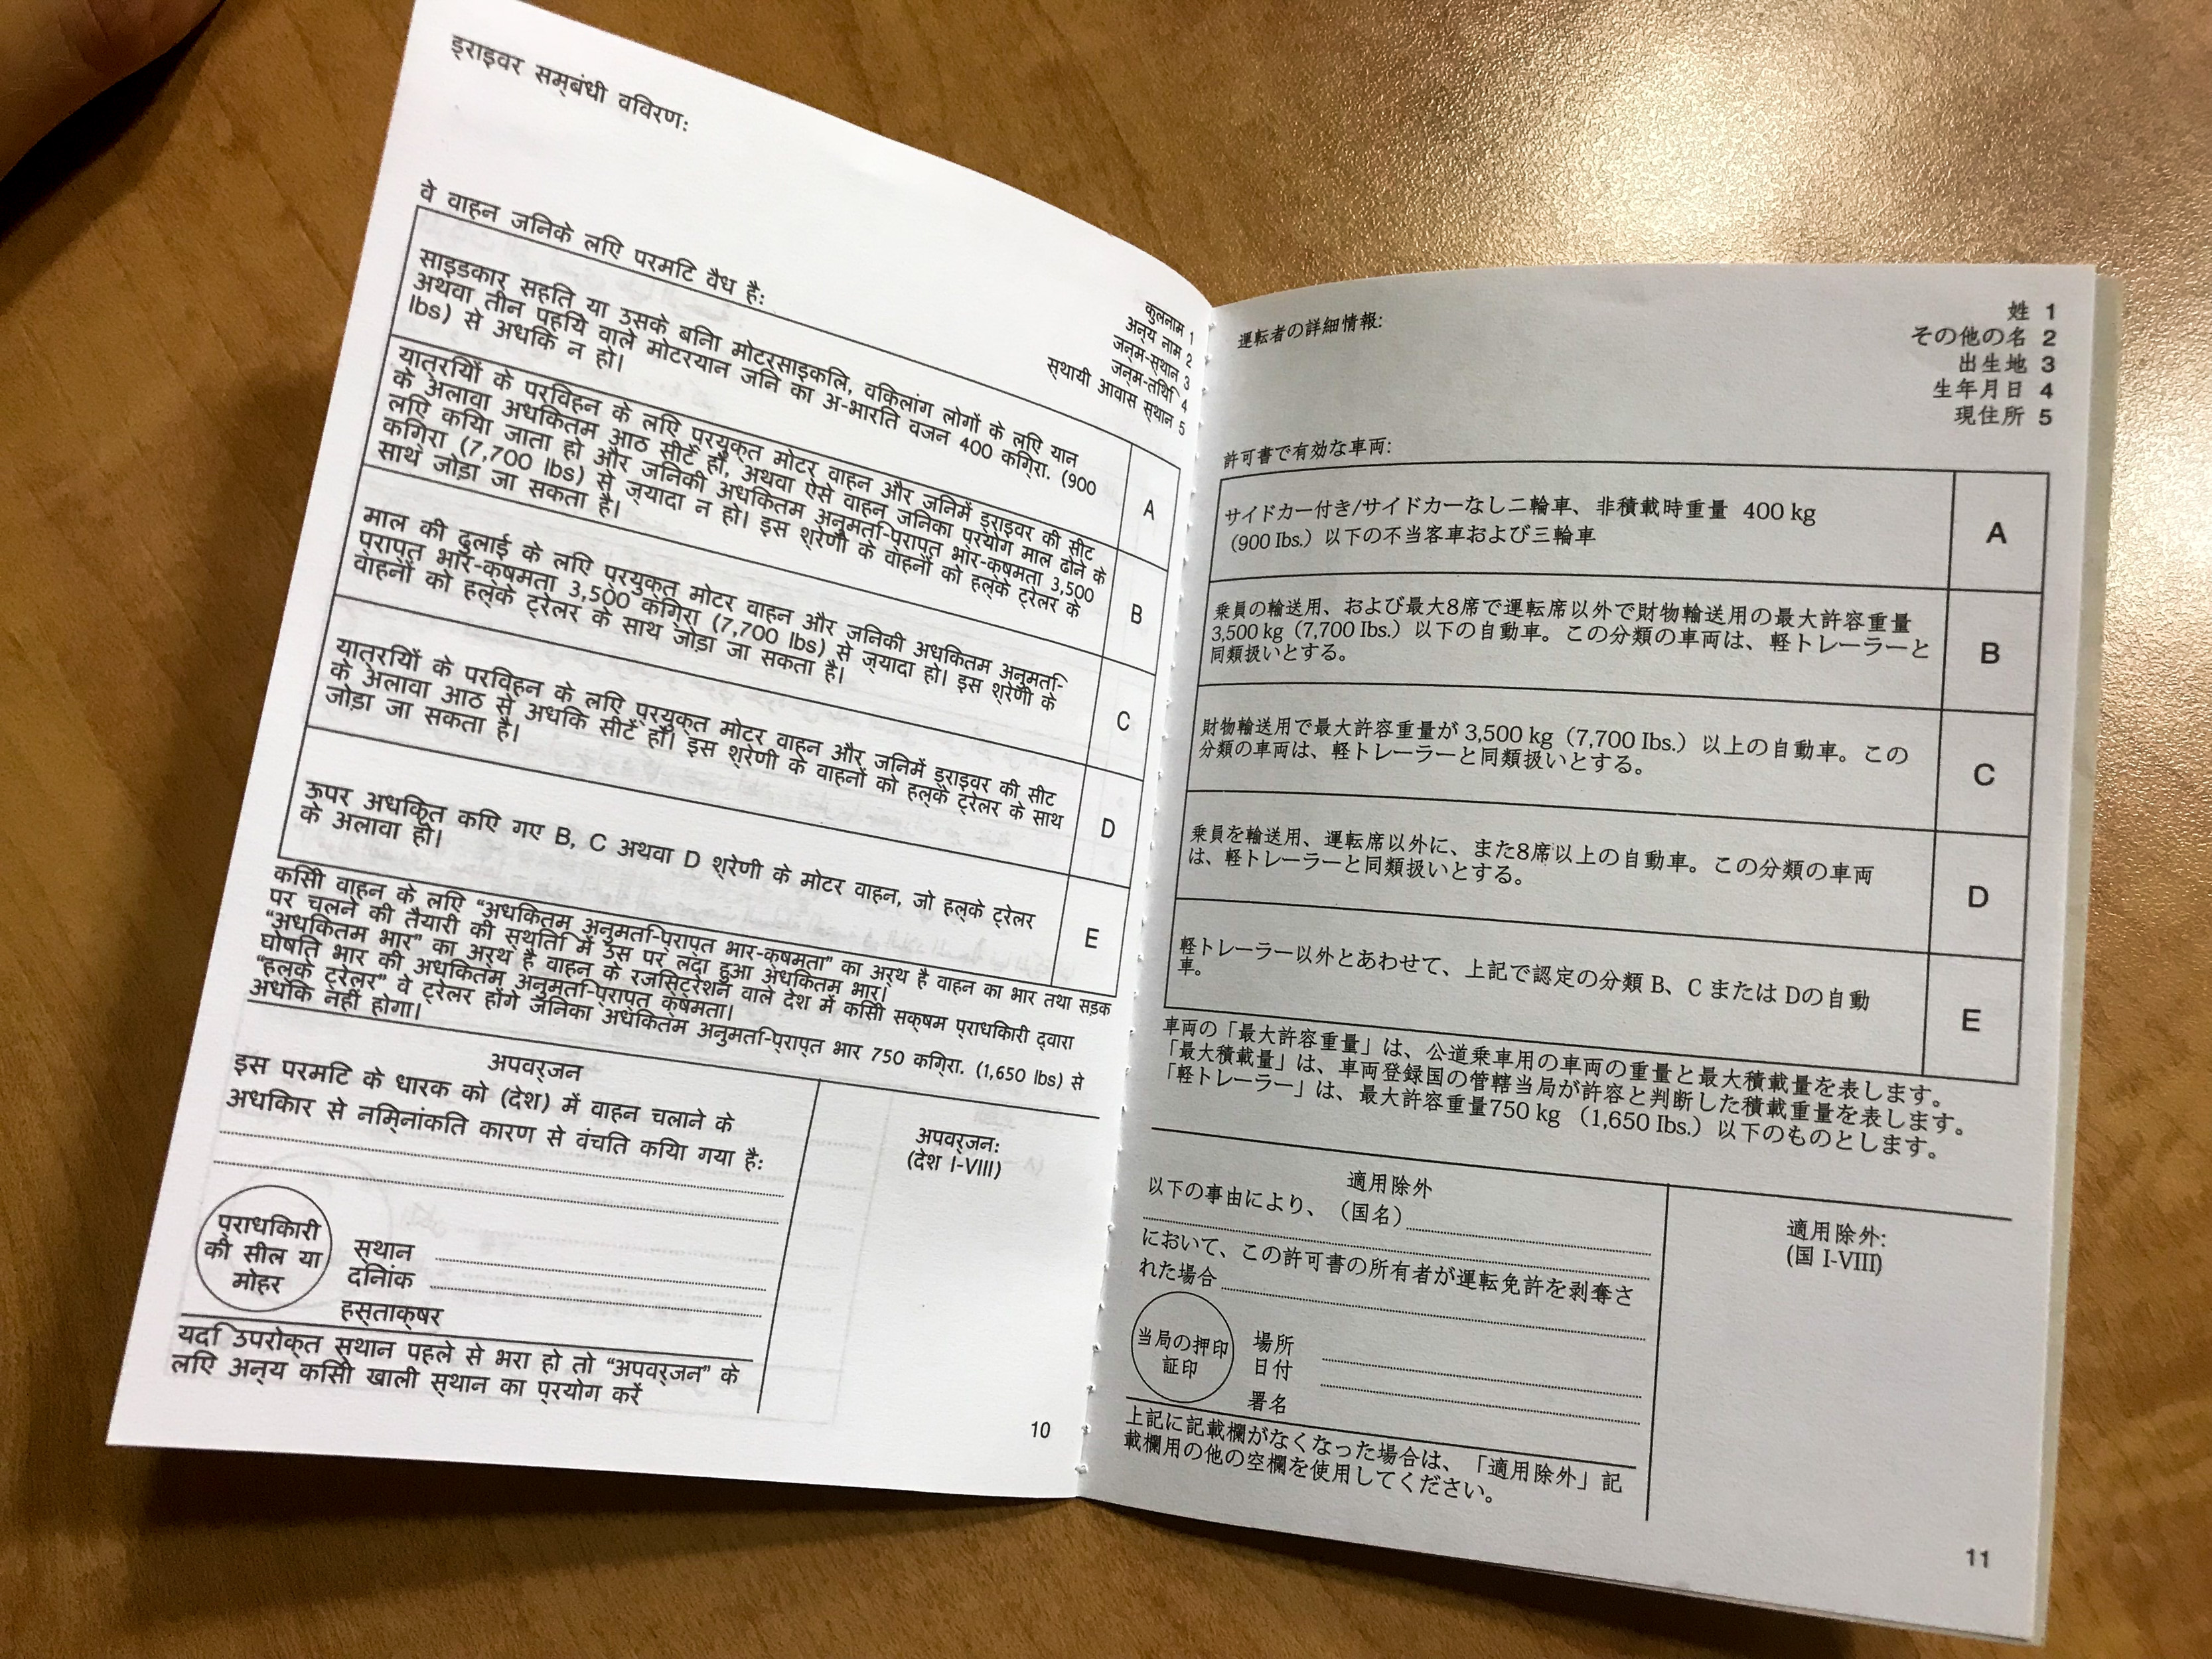 ड्राइवर सम्बंधी वविरण:
कुलनाम 1
अन्य नाम 2
जन्म-स्थान 3
जन्म-तथिि 4
स्थायी आवास स्थान 5
वे वाहन जनिके लएि परमटि वैध है:
साइडकार सहति या उसके बनिा मोटरसाइकलि, वकिलांग लोगों के लएि यान
अथवा तीन पहयिे वाले मोटरयान जनि का अ-भारति वजन 400 कगि्रा. (900
lbs) से अधकि न हो।
A
यात्रयिों के परविहन के लएि प्रयुक्त मोटर वाहन और जनिमें ड्राइवर की सीट
के अलावा अधकितम आठ सीटें हों, अथवा ऐसे वाहन जनिका प्रयोग माल ढोने के
लएि कयिा जाता हो और जनिकी अधकितम अनुमत-िप्राप्त भार-क्षमता 3,500
कगि्रा (7,700 lbs) से ज्यादा न हो। इस श्रेणी के वाहनों को हल्के ट्रेलर के
साथ जोड़ा जा सकता है।
B
माल की ढुलाई के लएि प्रयुक्त मोटर वाहन और जनिकी अधकितम अनुमत-ि
प्राप्त भार-क्षमता 3,500 कगि्रा (7,700 lbs) से ज्यादा हो। इस श्रेणी के
वाहनों को हल्के ट्रेलर के साथ जोड़ा जा सकता है।
C
यात्रयिों के परविहन के लएि प्रयुक्त मोटर वाहन और जनिमें ड्राइवर की सीट
के अलावा आठ से अधकि सीटें हों। इस श्रेणी के वाहनों को हल्के ट्रेलर के साथ
जोड़ा जा सकता है।
D
ऊपर अधकिृत कएि गए B, C अथवा D श्रेणी के मोटर वाहन, जो हल्के ट्रेलर
के अलावा हों।
E
कसिी वाहन के लएि “अधकितम अनुमत-िप्राप्त भार-क्षमता” का अर्थ है वाहन का भार तथा सड़क
पर चलने की तैयारी की स्थतिि में उस पर लदा हुआ अधकितम भार।
“अधकितम भार” का अर्थ है वाहन के रजसि्ट्रेशन वाले देश में कसिी सक्षम प्राधकिारी द्वारा
घोषति भार की अधकितम अनुमत-िप्राप्त क्षमता।
“हल्के ट्रेलर” वे ट्रेलर होंगे जनिका अधकितम अनुमत-िप्राप्त भार 750 कगि्रा. (1,650 lbs) से
अधकि नहीं होगा।
अपवर्जन
इस परमटि के धारक को (देश) में वाहन चलाने के
अधकिार से नमि्नांकति कारण से वंचति कयिा गया है:
प्राधकिारी
की सील या
मोहर
स्थान
दनिांक
हस्ताक्षर
यदि उपरोक्त स्थान पहले से भरा हो तो “अपवर्जन” के
लएि अन्य कसिी खाली स्थान का प्रयोग करें
अपवर्जन:
(देश I-VIII)
10
運転者の詳細情報:
姓 1
その他の名 2
出生地 3
生年月日 4
現住所 5
許可書で有効な車両:
サイドカー付き/サイドカーなし二輪車、非積載時重量 400 kg
（900 Ibs.）以下の不当客車および三輪車
A
乗員の輸送用、および最大8席で運転席以外で財物輸送用の最大許容重量
3,500 kg（7,700 Ibs.）以下の自動車。この分類の車両は、軽トレーラーと
同類扱いとする。
B
財物輸送用で最大許容重量が 3,500 kg（7,700 Ibs.）以上の自動車。この
分類の車両は、軽トレーラーと同類扱いとする。
C
乗員を輸送用、運転席以外に、また8席以上の自動車。この分類の車両
は、軽トレーラーと同類扱いとする。
D
軽トレーラー以外とあわせて、上記で認定の分類 B、C または Dの自動
車。
E
車両の「最大許容重量」は、公道乗車用の車両の重量と最大積載量を表します。
「最大積載量」は、車両登録国の管轄当局が許容と判断した積載重量を表します。
「軽トレーラー」は、最大許容重量750 kg （1,650 Ibs.）以下のものとします。
適用除外
以下の事由により、（国名）
において、この許可書の所有者が運転免許を剥奪さ
れた場合
当局の押印
証印
場所
日付
署名
上記に記載欄がなくなった場合は、「適用除外」記
載欄用の他の空欄を使用してください。
適用除外:
(国 I-VIII)
11